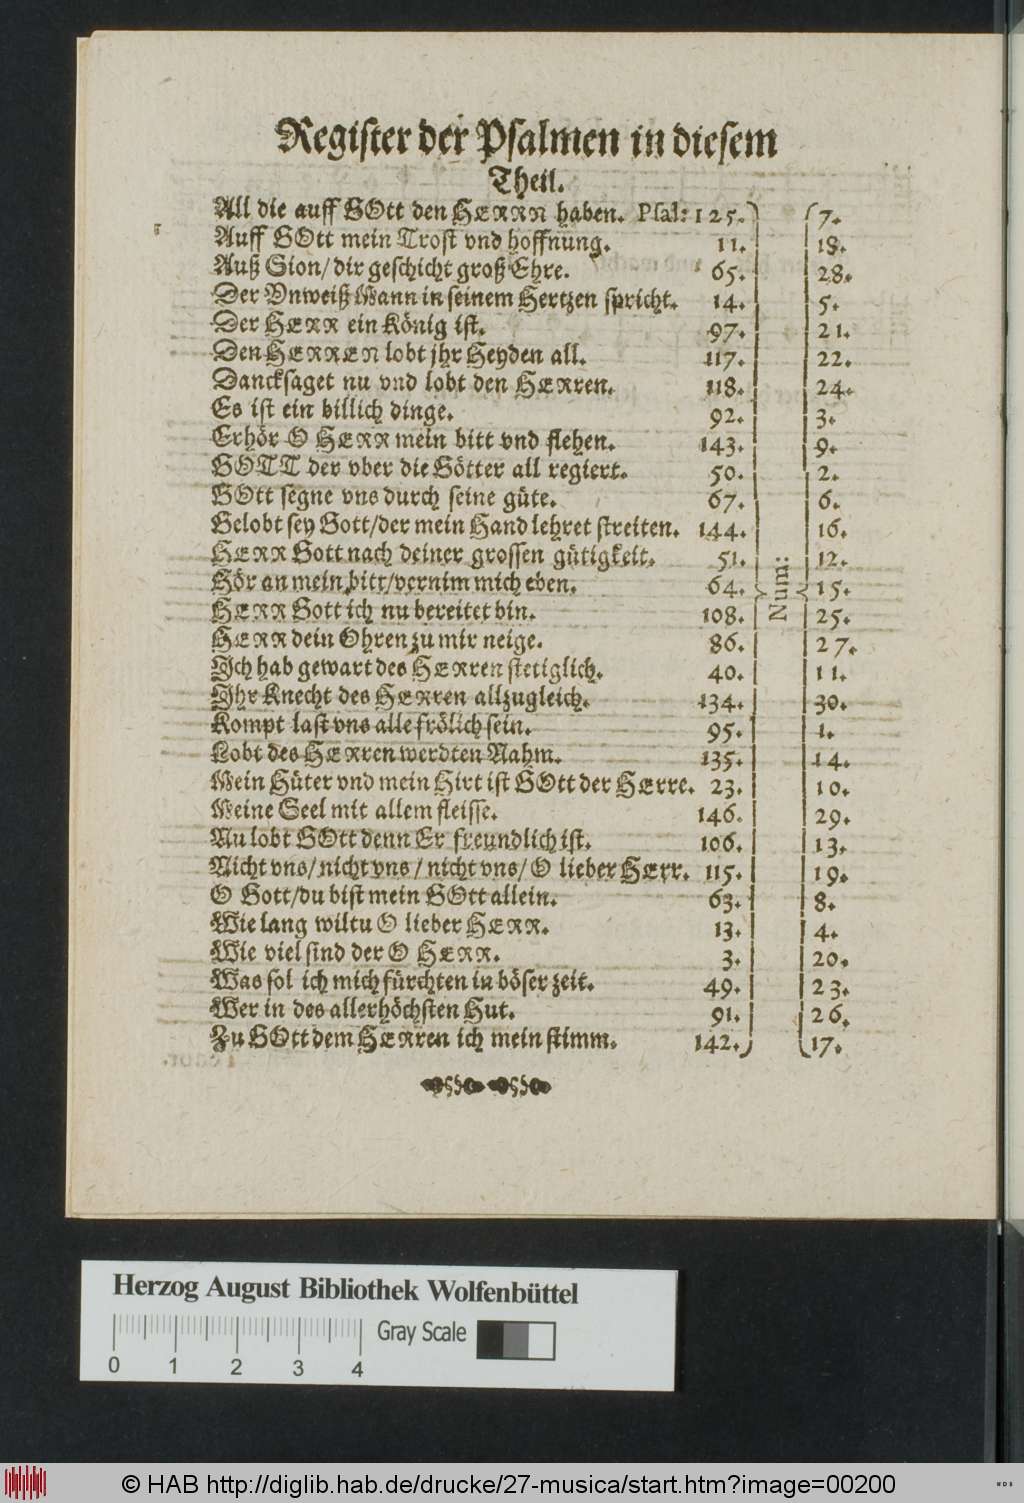 Register der Psalmen in diesem
Theil.
All die auff GOtt den HERRN haben. Psal: 125. 7.
Auff GOtt mein Trost vnd hoffnung. 11. 18.
Auß Sion/ dir geschicht groß Ehre. 65. 28.
Der Vnweiß Mann in seinem Hertzen spricht. 14. 5.
Der HERR ein König ist. 97. 21.
Den HERREN lobt jhr Heyden all. 117. 22.
Dancksaget nu vnd lobt den HERren. 118. 24.
Es ist ein billich dinge. 92. 3.
Erhör O HERR mein bitt vnd flehen. 143. 9.
GOTT der vber die Götter all regiert. 50. 2.
GOtt segne vns durch seine güte. 67. 6.
Gelobt sey Gott/der mein Hand lehret streiten. 144. 16.
HERR Gott nach deiner grossen gütigkeit. 51. 12.
Hör an mein bitt/vernim mich eben. 64. Num: 15.
HERR Gott ich nu bereitet bin. 108. 25.
HERR dein Ohren zu mir neige. 86. 27.
Ich hab gewart des HERren stetiglich. 40. 11.
Ihr Knecht des HERren allzugleich. 134. 30.
Kompt last vns alle frölich sein. 95. 1.
Lobt des HERren werdten Nahm. 135. 14.
Mein Hüter vnd mein Hirt ist GOtt der HErre. 23. 10.
Meine Seel mit allem fleisse. 146. 29.
Nu lobt GOtt denn Er freundlich ist. 106. 13.
Nicht vns/ nicht vns / nicht vns/ O lieber HErr. 115. 19.
O Gott/du bist mein GOtt allein. 63. 8.
Wie lang wiltu O lieber HERR. 13. 4.
Wie viel sind der O HERR. 3. 20.
Was sol ich mich fürchten in böser zeit. 49. 23.
Wer in des allerhöchsten Hut. 91. 26.
Zu GOtt dem HERren ich mein stimm. 142. 17.
Herzog August Bibliothek Wolfenbüttel
Gray Scale
0 1 2 3 4
© HAB http://diglib.hab.de/drucke/27-musica/start.htm?image=00200